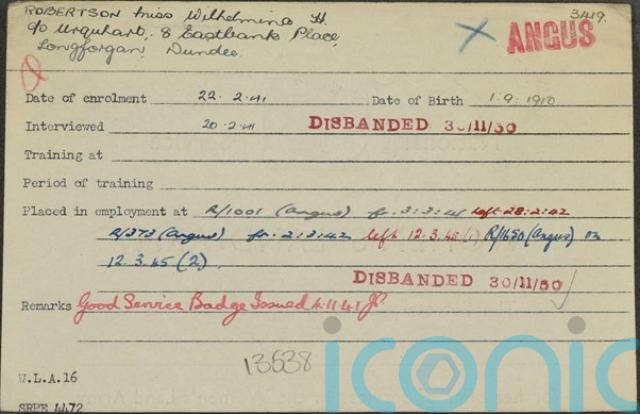 3419.
ROBERTSON Miss Wilhelmina H.
c/o Urquhart, 8 Eastbank Place,
Longforgan, Dundee.
ANGUS
Date of enrolment 22. 2. 41 Date of Birth 1. 9. 1910
Interviewed 20. 2. 41 DISBANDED 30/11/50
Training at
Period of training
Placed in employment at R/1001 (Angus) fr. 3:3:41 left 28:2:42
R/373 (Angus) fr. 2:3:42 left 12.3.45 (1) R/1650 (Angus) on
12.3.45 (2)
DISBANDED 30/11/50
Remarks Good Service Badge Issued 4.11.41
13638
W.L.A.16
SRPE 4472
iconic